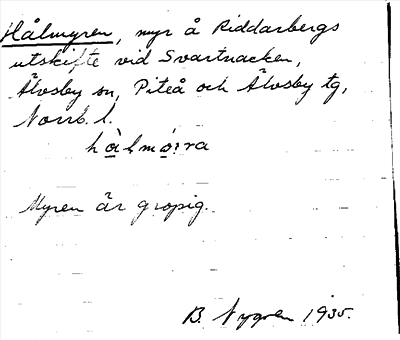 Hålmyren, myr å Riddarbergs
utskifte vid Svartnacken,
Älvsby sn, Piteå och Älvsby tg,
Norrb. l.
hå̀lmó̤ra
Myren är gropig.
B. Nygren 1935.